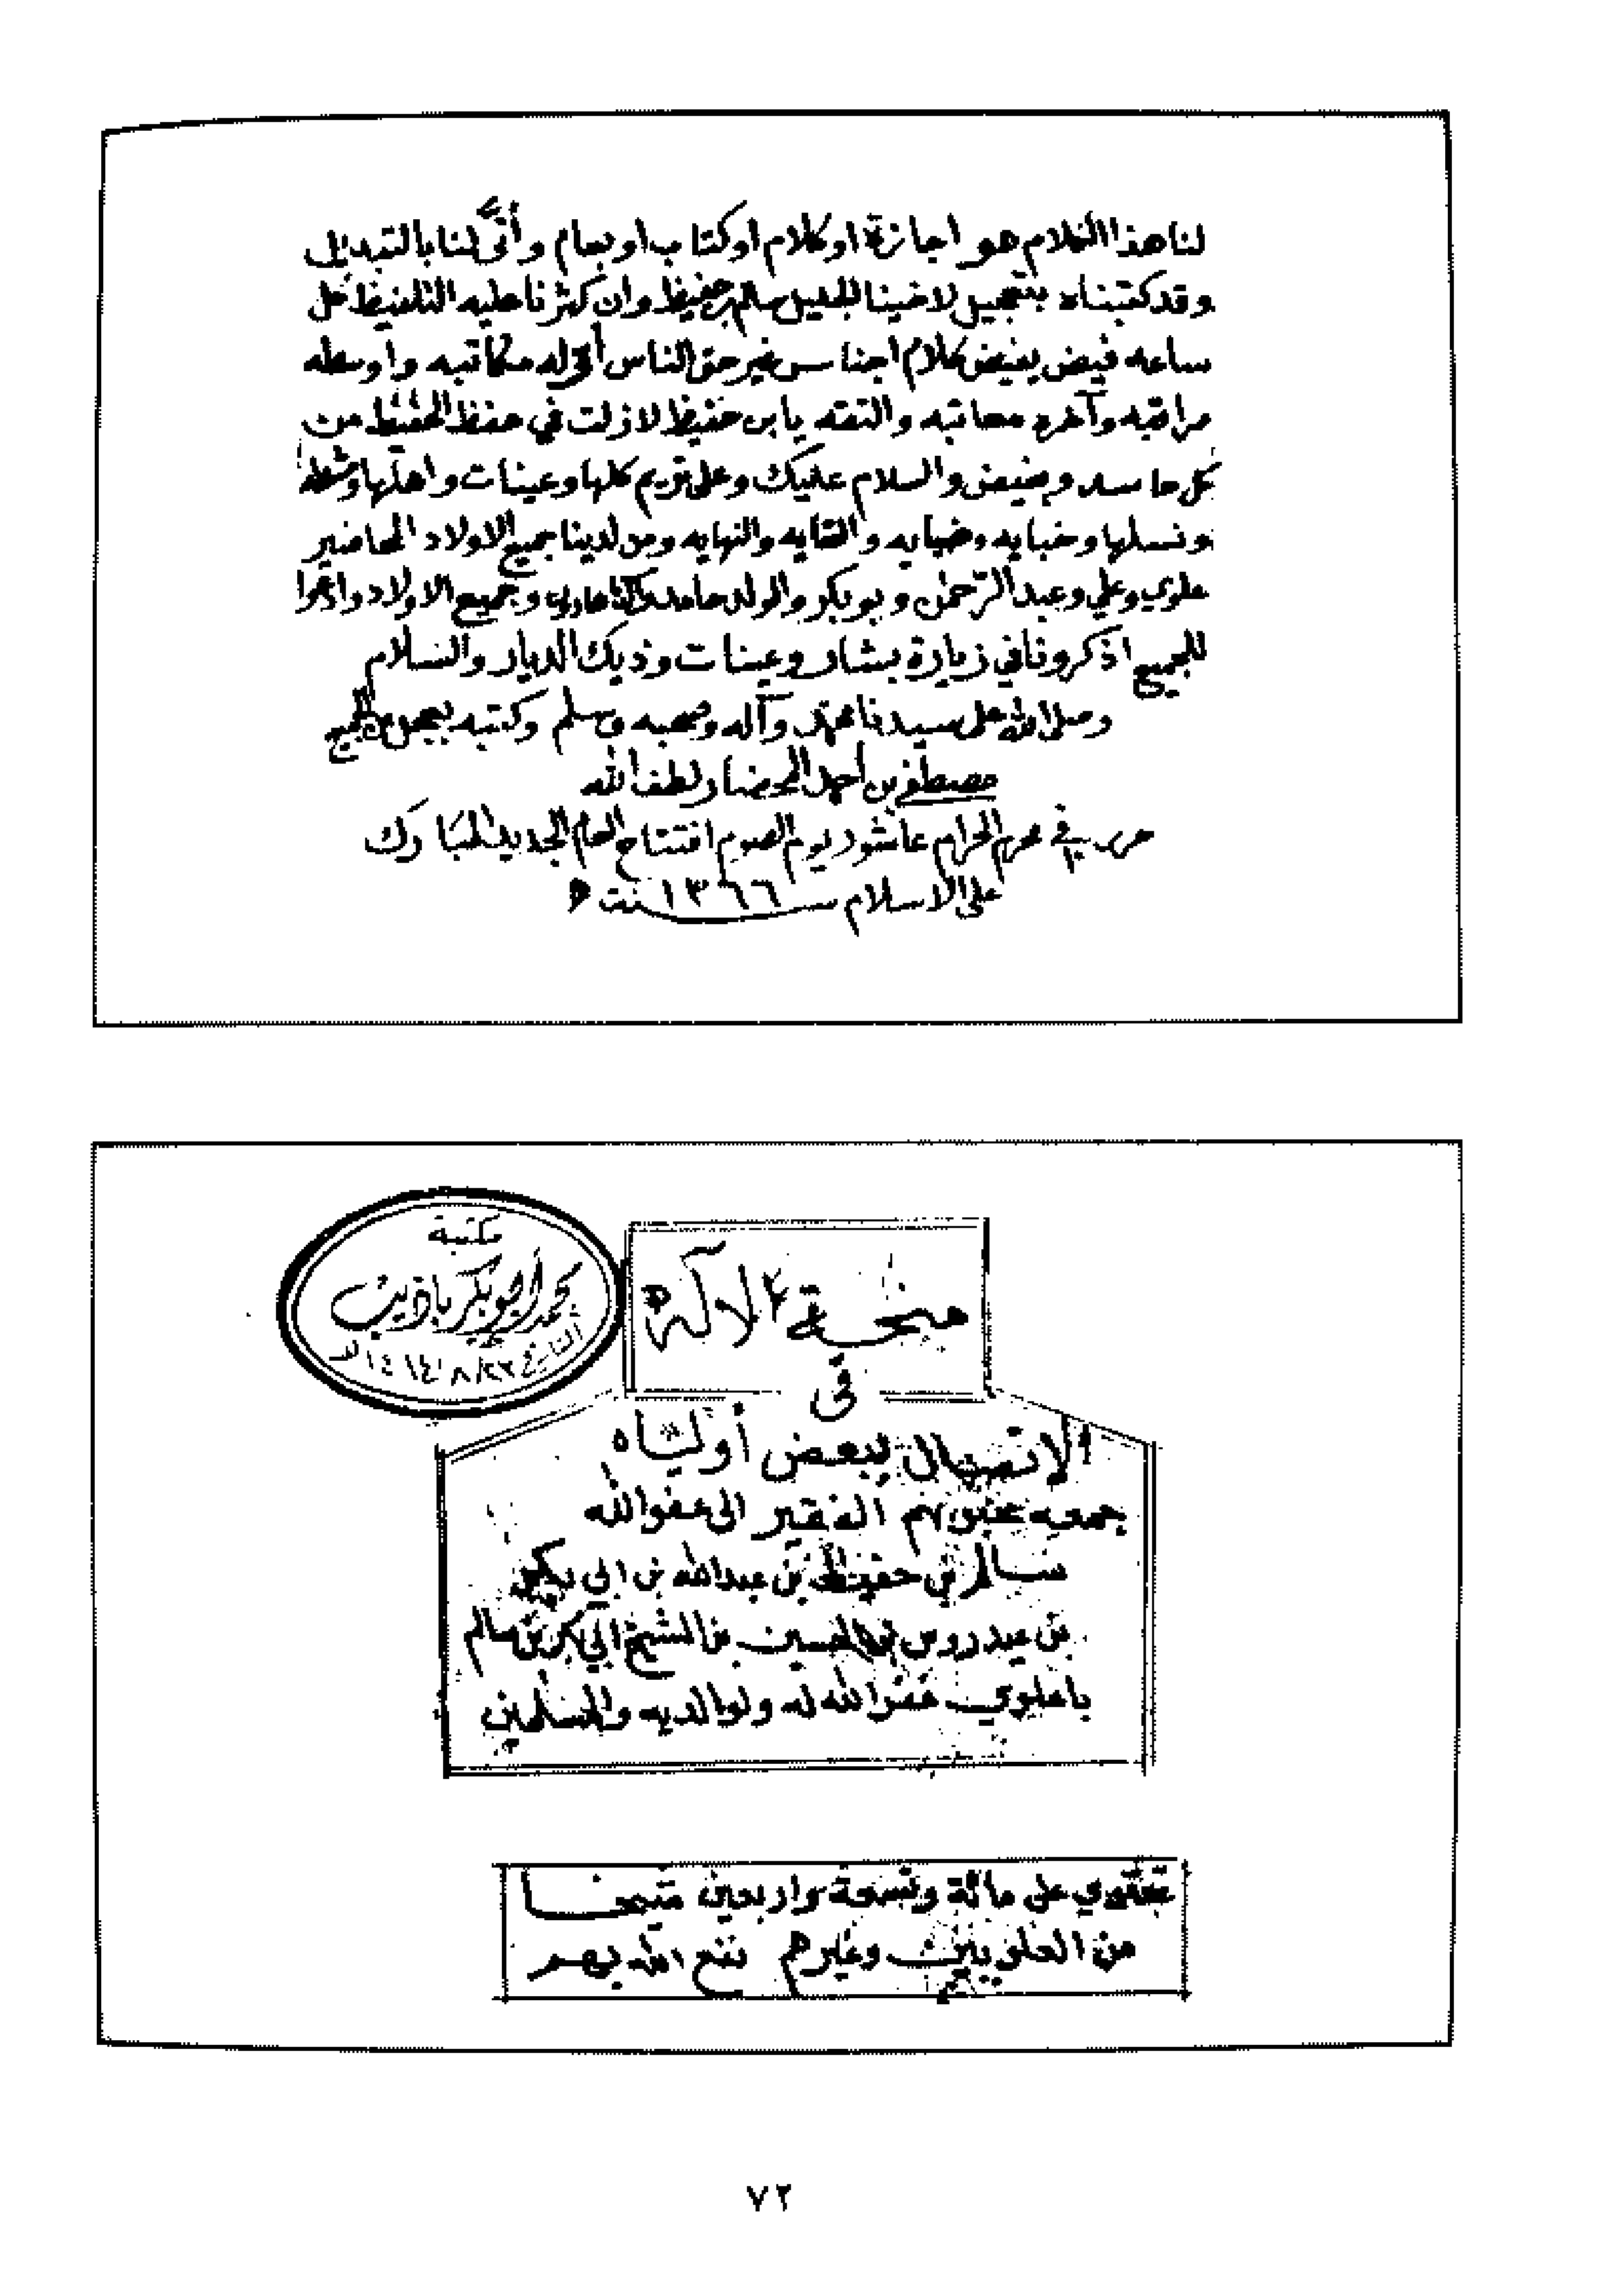 لنا هذا الكلام هو اجازة او كلام او كتاب او بعام وأنى لنا بالتبديل
وقد كتبناه بتعجيل لاخينا الجليل سالم بن حفيظ وان كثرنا عليه التلفيظ كل
ساعه فيض يفيض كلام اجناس غير حق الناس أوله مكاتبه واوسطه
مراقبه وآخره معاتبه والتفقه يا بن حفيظ لازلت في حفظ الحفيظ من
كل حاسد وبغيض والسلام عليك وعلى تريم كلها وعينات واهلها وشظه
ونسلها وخبايه وضبايه والقايه والنهايه ومن لدينا جميع الاولاد المحاضير
علوي وعلي وعبد الرحمن وبوبكر والولد حامد وجميع الاولاد وادعوا
للجميع اذكرونا في زيارة بشار وعينات وذيك الديار والسلام
وصلى الله على سيدنا محمد وآله وصحبه وسلم وكتبه بيمين الجميع
مصطفى بن احمد المحضار لطف الله
حرر في ١٠ محرم الحرام عاشور يوم الصوم افتتاح العام الجديد المبارك
على الاسلام سنة ١٣٦٦ ه
مكتبة
محمد أبو بكر باذيب
التاريخ ٢٢/٨/١٤١٤ هـ
منحة الاله
في
الاتصال ببعض أولياه
جمعه عفي عنهم الفقير الى عفو الله
سالم بن حفيظ بن عبدالله بن ابي بكر
بن عيدروس بن الحسين بن الشيخ ابي بكر بن سالم
باعلوي غفر الله له ولوالديه والمسلمين
تحتوي على مائة وتسعة واربعين شيخا
من العلويين وغيرهم نفع الله بهم
٧٢